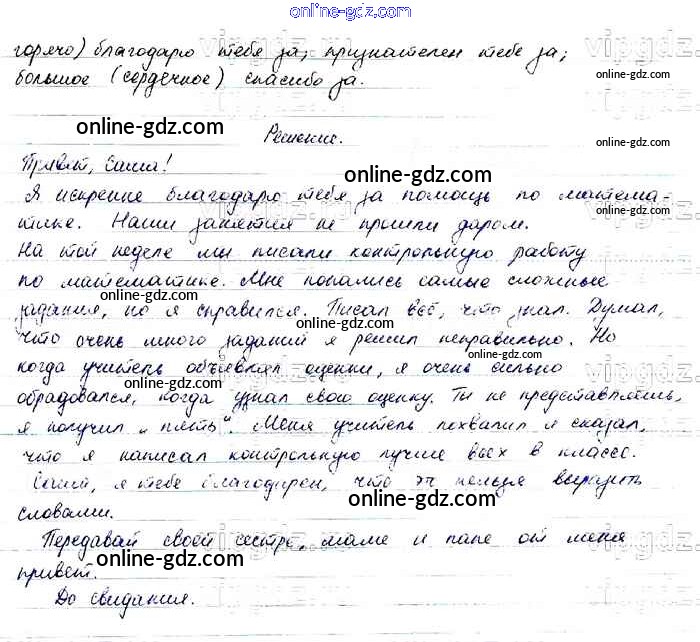 online-gdz.com
горячо) благодарю тебя за; признателен тебе за;
большое (сердечное) спасибо за.
Решение.
Привет, Саша!
Я искренне благодарю тебя за помощь по матема-
тике. Наши занятия не прошли даром.
На той неделе мы писали контрольную работу
по математике. Мне попались самые сложные
задания, но я справился. Писал всё, что знал. Думал,
что очень много заданий я решил неправильно. Но
когда учитель объявлял оценки, я очень сильно
обрадовался, когда узнал свою оценку. Ты не представляешь,
я получил „пять“. Меня учитель похвалил и сказал,
что я написал контрольную лучше всех в классе.
Саша, я тебе благодарен, что нельзя выразить
словами.
Передавай своей сестре, маме и папе от меня
привет.
До свидания.